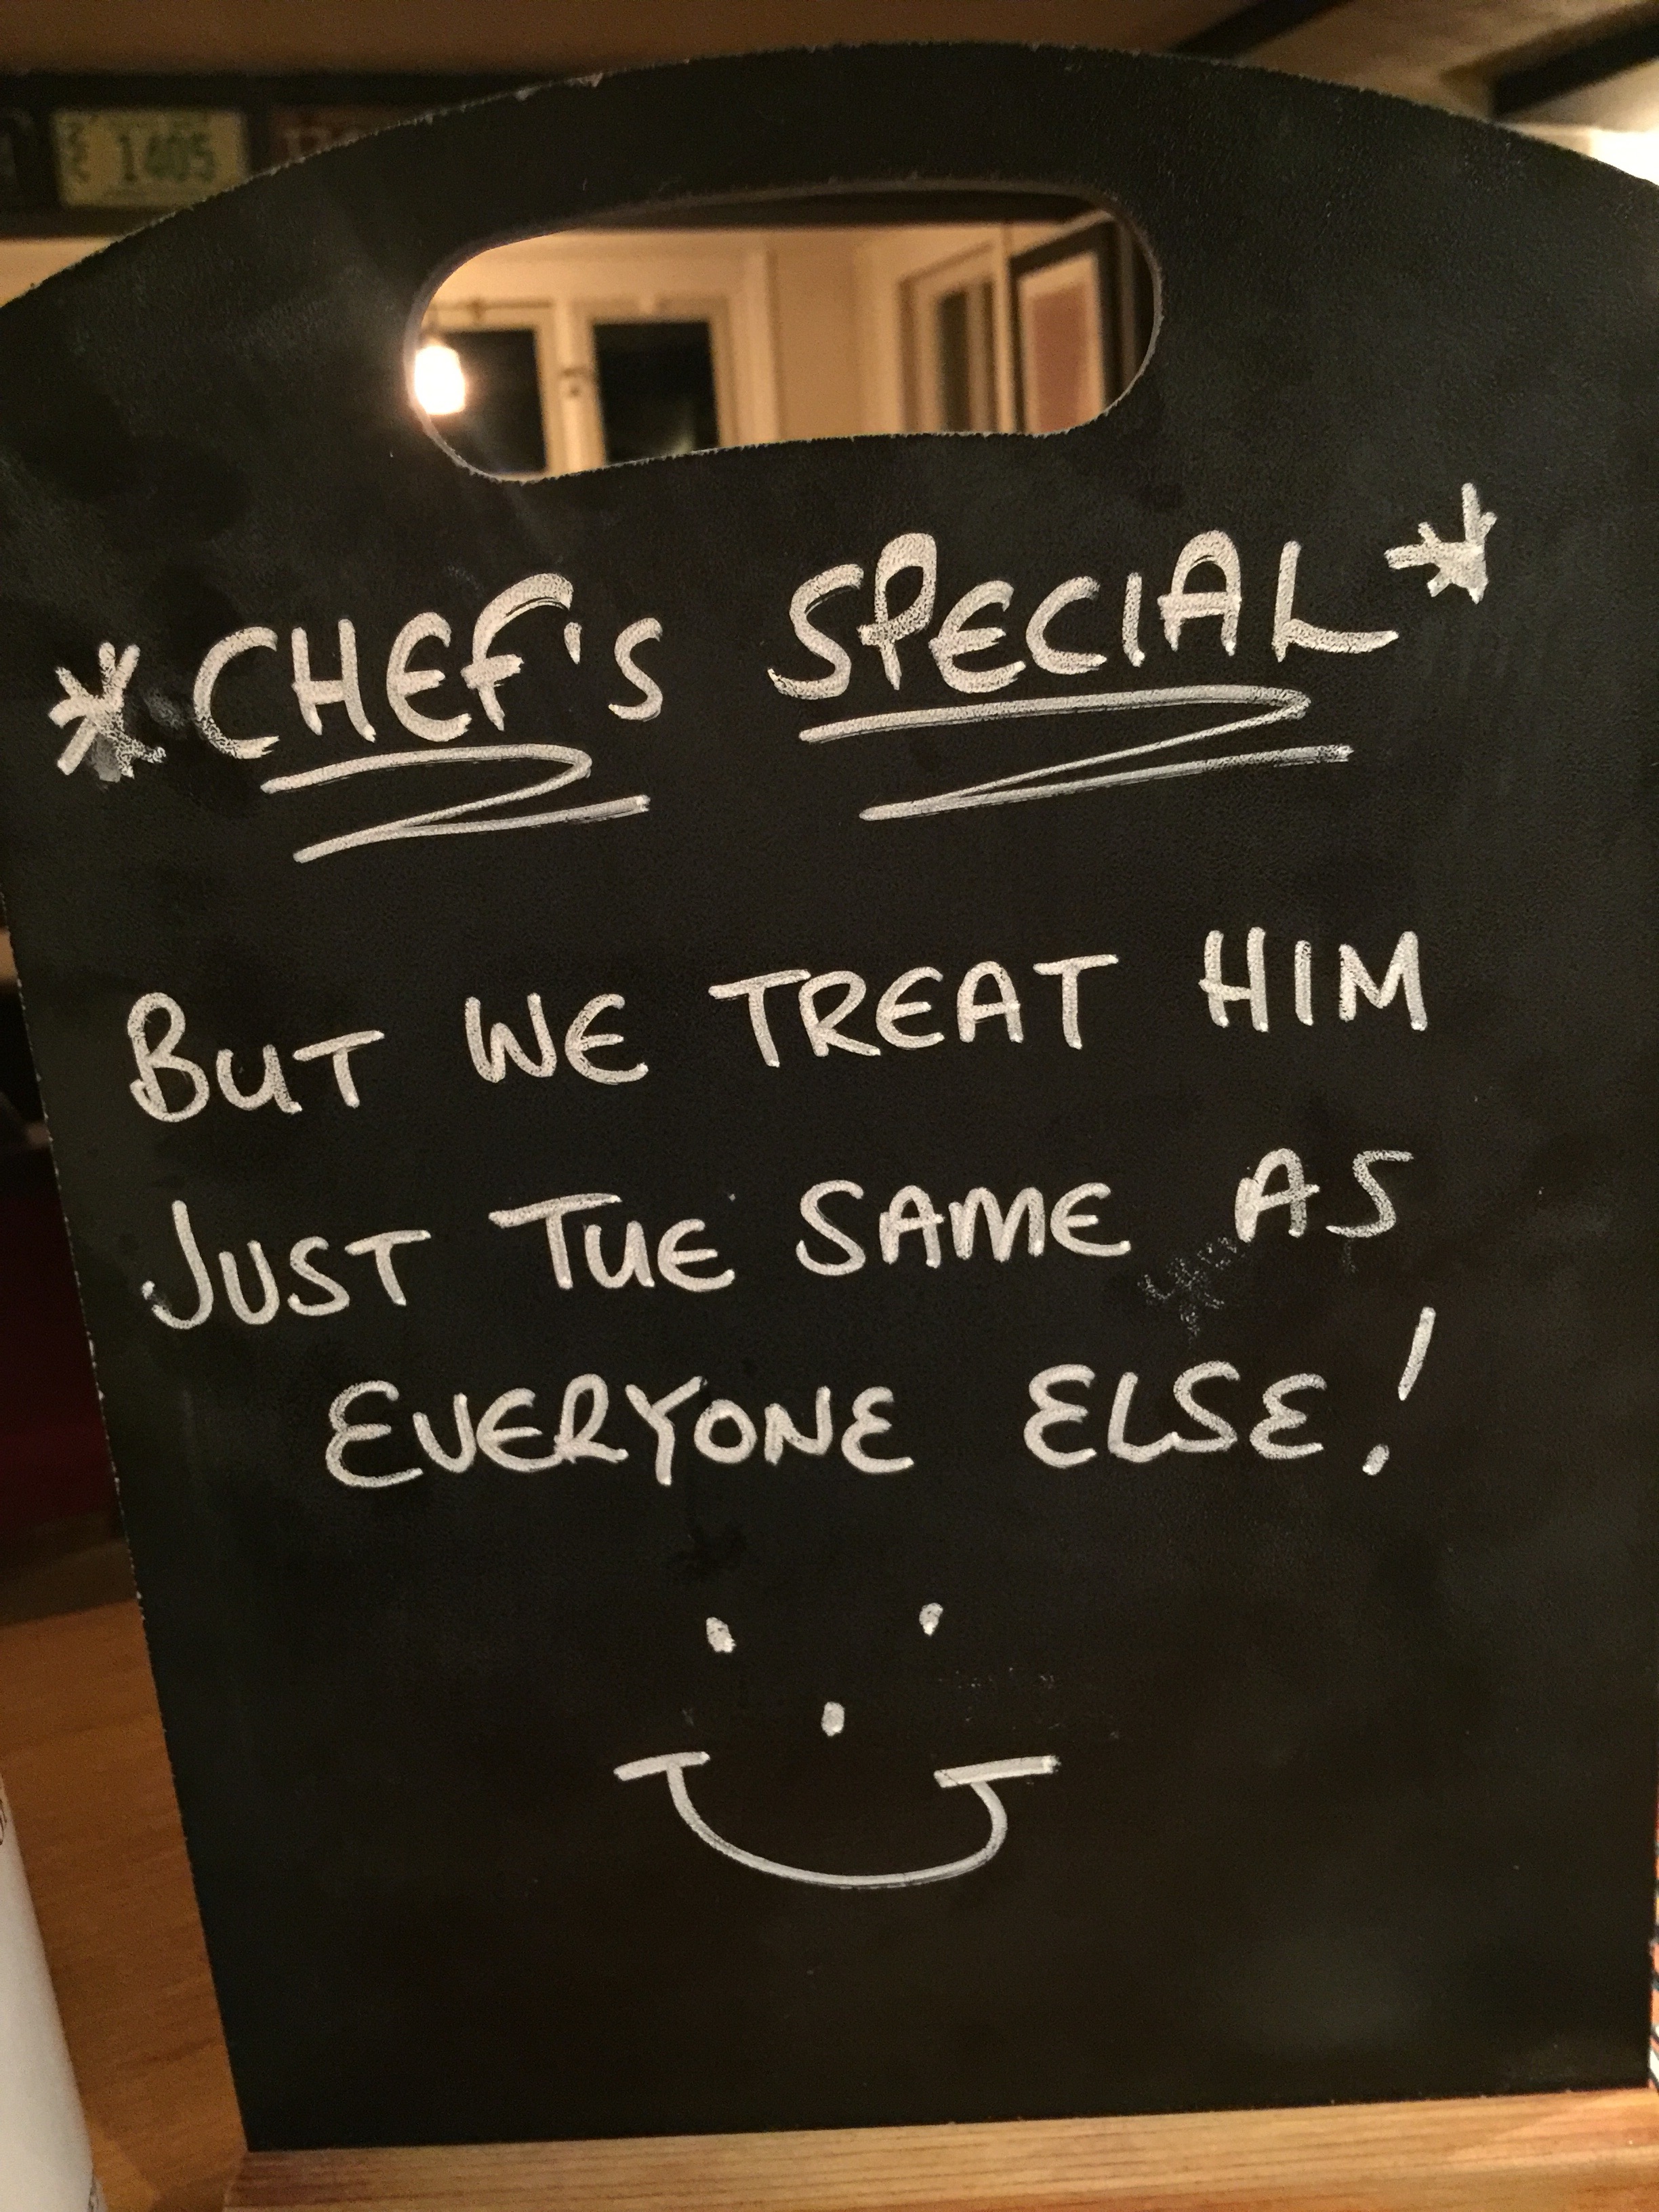 1405
*CHEF's SPECIAL*
BUT WE TREAT HIM
JUST TUE SAME AS
EVERYONE ELSE!